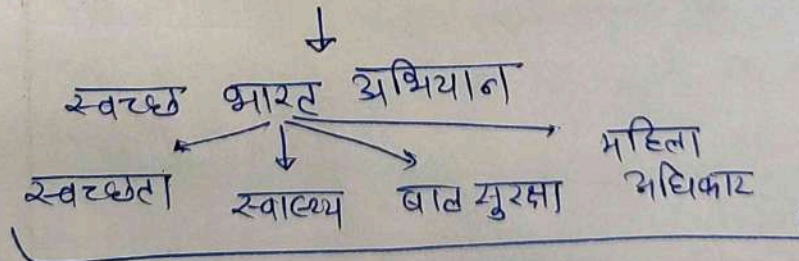 स्वच्छ भारत अभियान
स्वच्छता स्वास्थ्य बाल सुरक्षा महिला
अधिकार